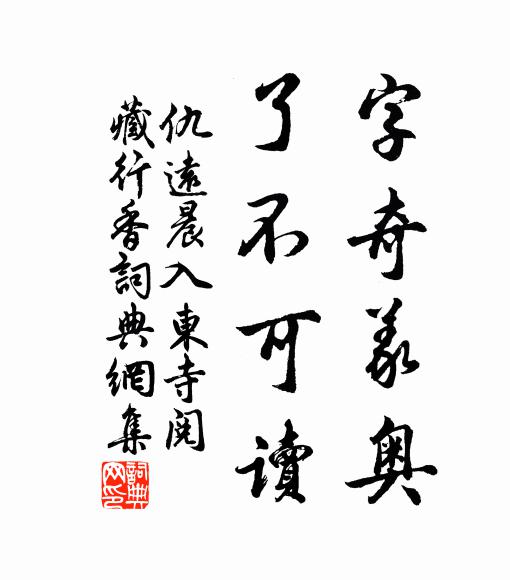 字奇義奧
了不可讀
仇遠晨入東寺閱
藏行香詞典網集
詞典网印